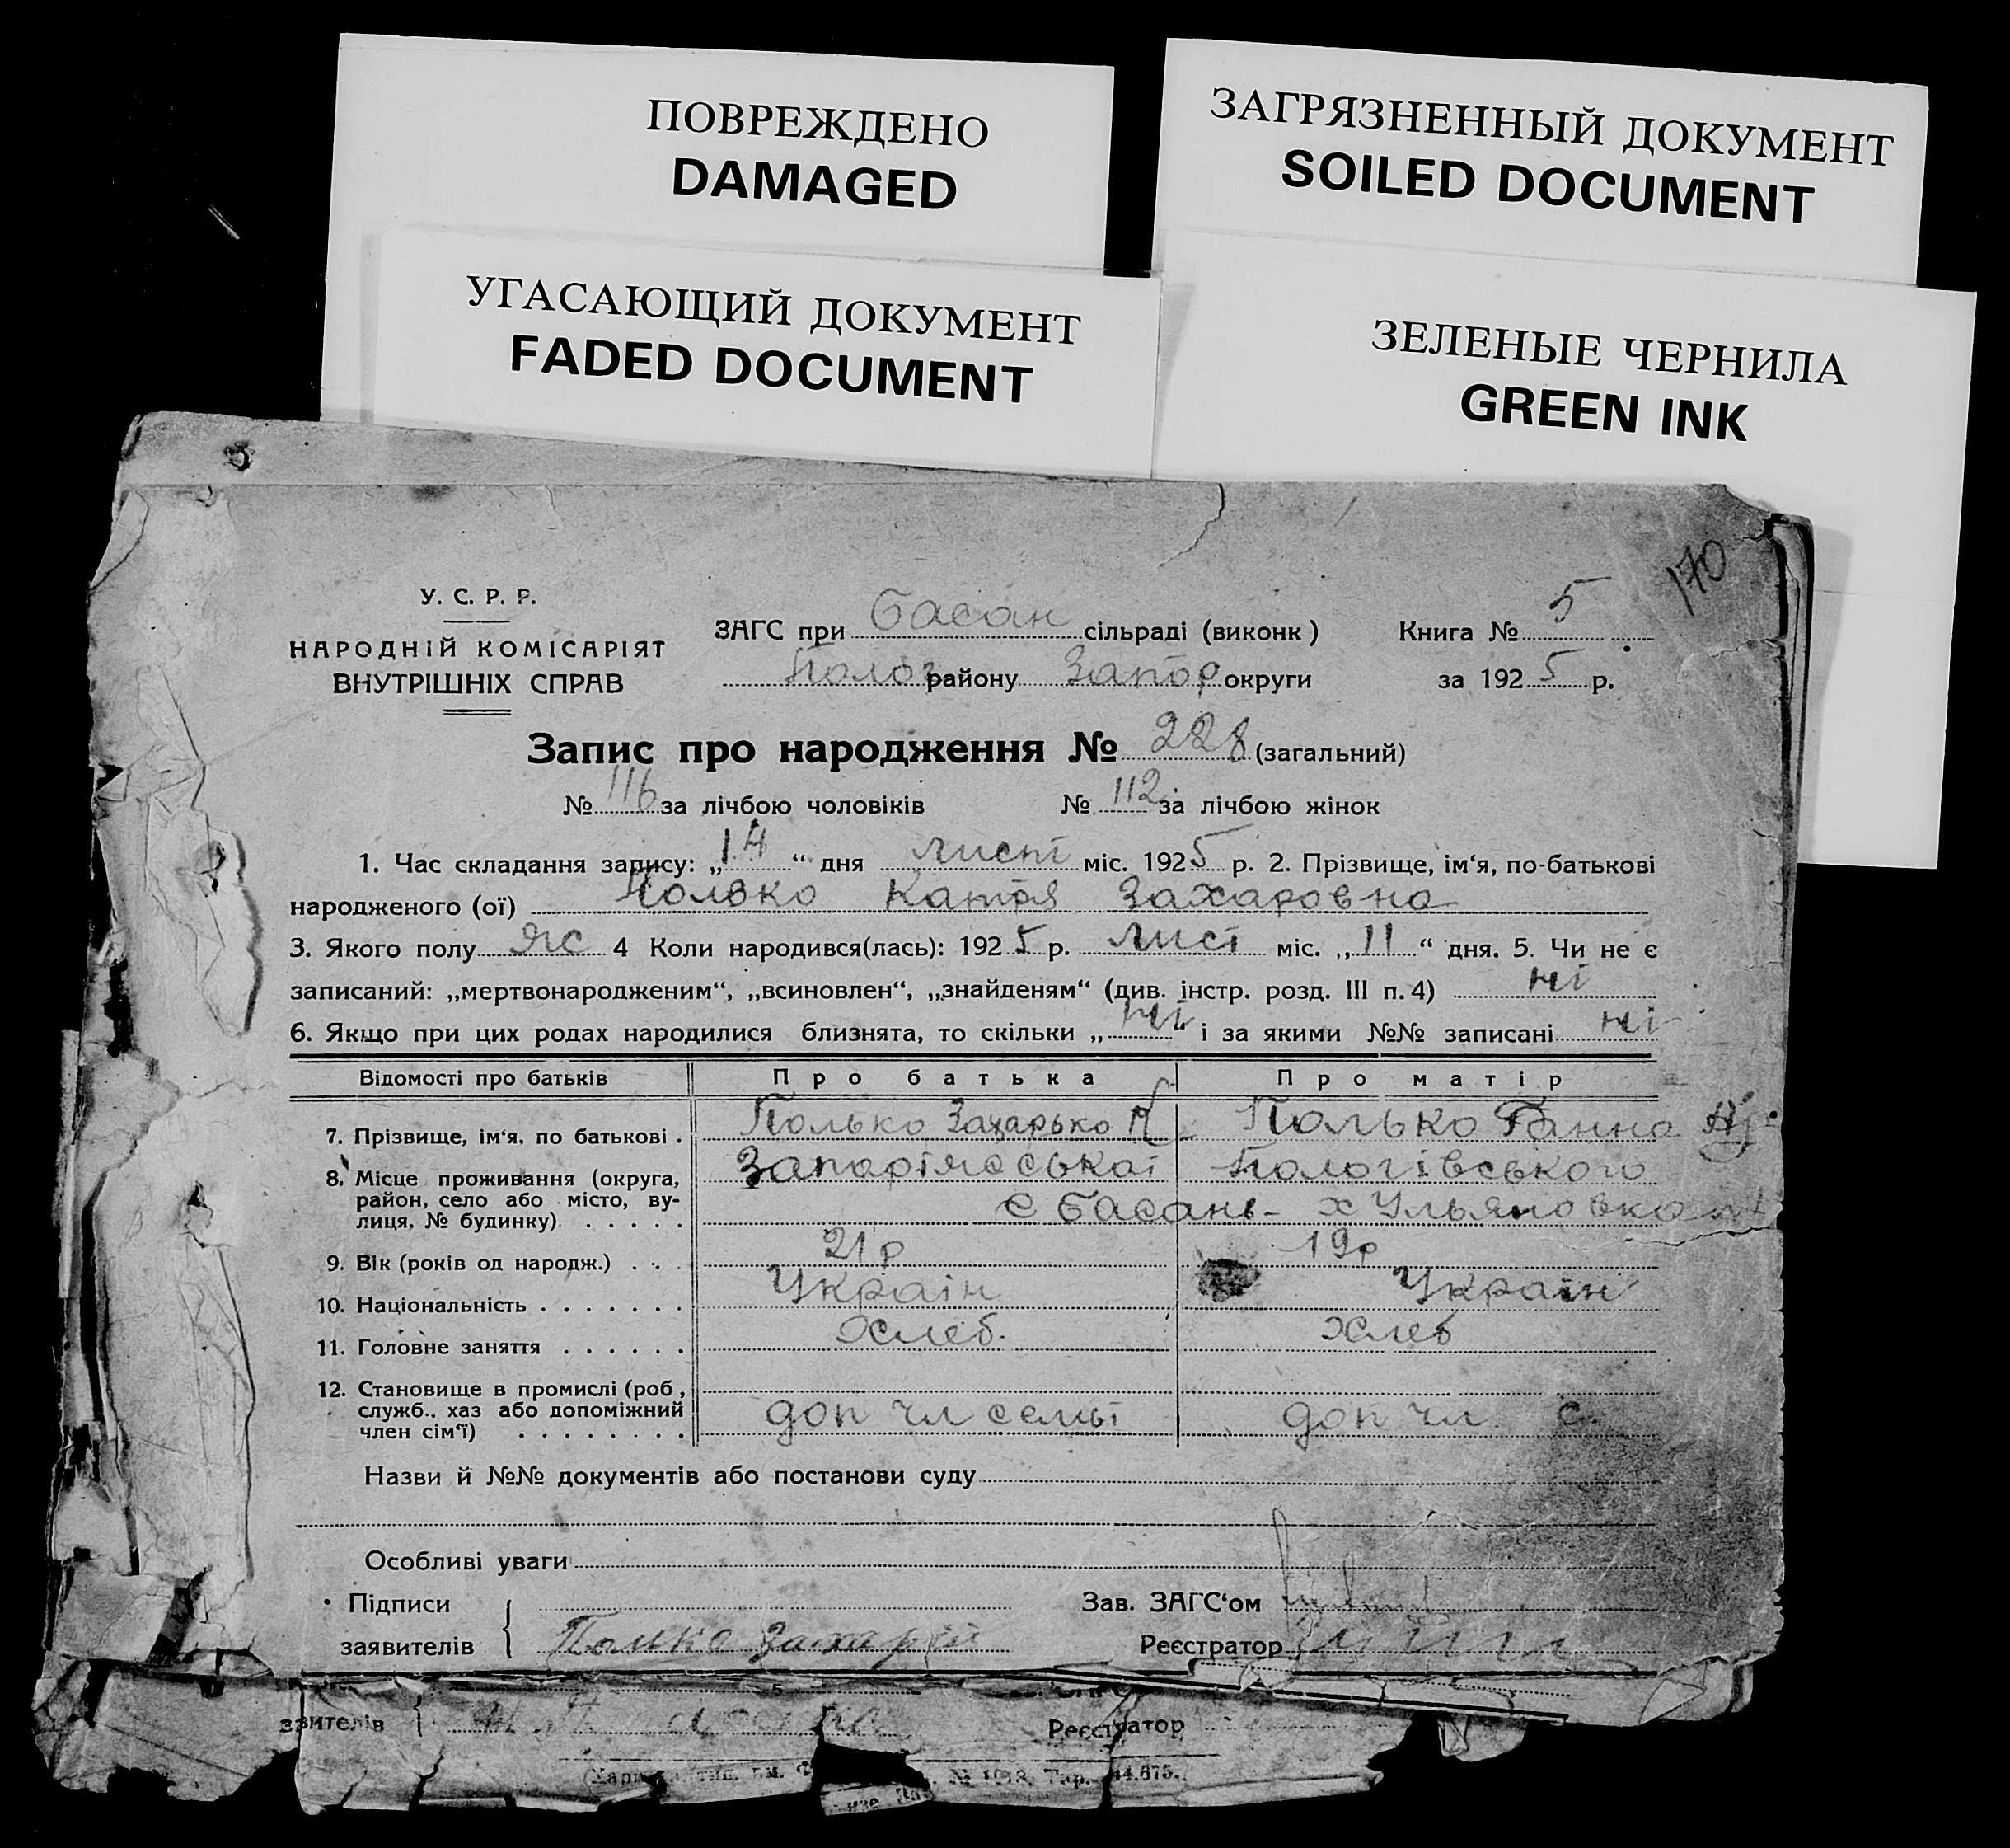 ПОВРЕЖДЕНО
DAMAGED
ЗАГРЯЗНЕННЫЙ ДОКУМЕНТ
SOILED DOCUMENT
УГАСАЮЩИЙ ДОКУМЕНТ
FADED DOCUMENT
ЗЕЛЕНЫЕ ЧЕРНИЛА
GREEN INK
170
У. С. Р. Р.
НАРОДНІЙ КОМІСАРІЯТ
ВНУТРІШНІХ СПРАВ
ЗАГС при Басан сільраді (виконк) Книга № 5
Полог району Запор округи за 1925 р.
Запис про народження № 228 (загальний)
№ 116 за лічбою чоловіків № 112 за лічбою жінок
1. Час складання запису: „14“ дня лист міс. 1925 р. 2. Прізвище, ім'я, по-батькові
народженого (ої) Полько Катря Захаровна
3. Якого полу жс 4 Коли народився(лась): 1925 р. лист міс. „11“ дня. 5. Чи не є
записаний: „мертвонародженим“, „всиновлен“, „знайденям“ (див. інстр. розд. III п. 4) ні
6. Якщо при цих родах народилися близнята, то скільки „ні і за якими №№ записані ні
Відомості про батьків Про батька Про матір
7. Прізвище, ім'я, по батькові . Полько Захарько Полько Ганна
8. Місце проживання (округа, район, село або місто, вулиця, № будинку) . . . . . Запоріжської Пологівського
с Басань - х Ульяновка
9. Вік (років од народж.) . . . 21 р 19 р
10. Національність . . . . . . . Україн Україн
11. Головне заняття . . . . . . Хлеб. Хлеб
12. Становище в промислі (роб, служб.. хаз або допоміжний член сім'ї) . . . . . . . . доп чл семьї доп чл. с.
Назви й №№ документів або постанови суду
Особливі уваги
Підписи
заявителів Полько Захарій
Зав. ЗАГС'ом
Реєстратор
Реєстратор